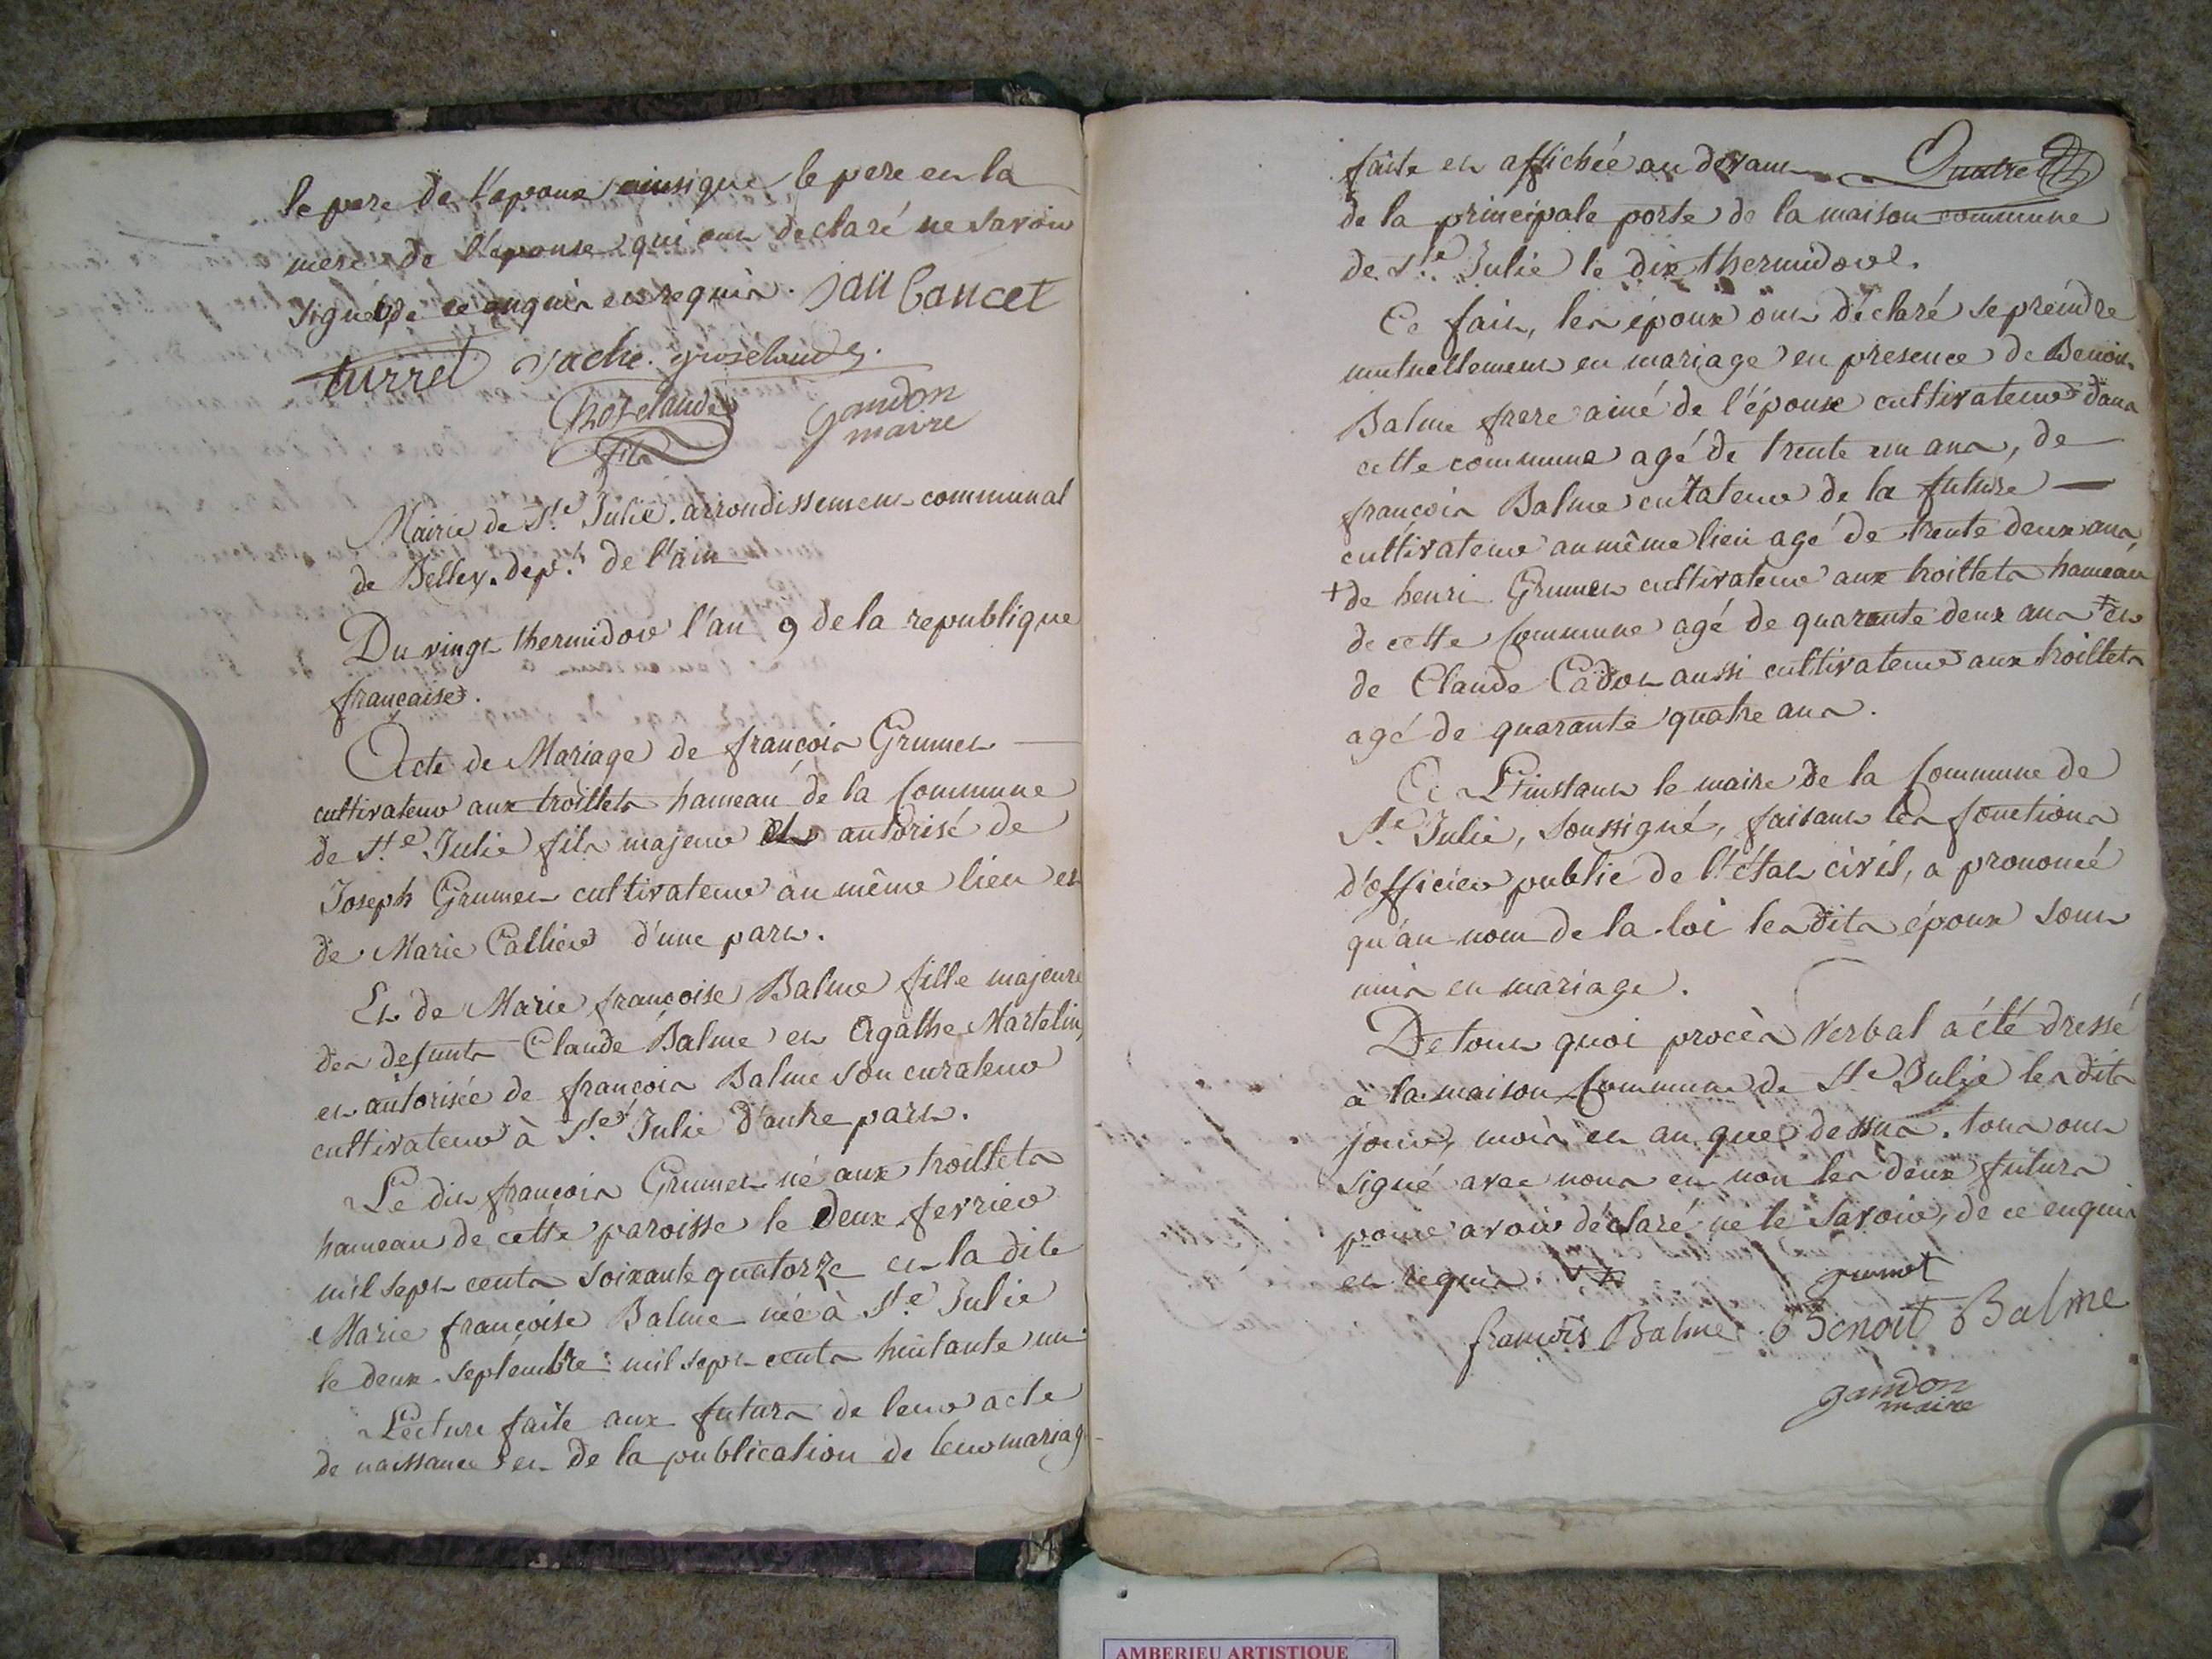 le pere de l'epoux ainsi que le pere et la
mere de l'epouse qui ont declaré ne savoir
signé de ce enquis et requis. jaü Cancet
turrel vache groselaude
Groselaude
fils
gandon
maire
Mairie de Ste Julie. arrondissement communal
de Belley. dept de l'ain
Du vingt thermidor l'an 9 de la republique
française.
Acte de Mariage de françois Grumet
cultivateur aux troillets hameau de la Commune
de Ste Julie fils majeur et autorisé de
Joseph Grumet cultivateur au même lieu et
de Marie Callier d'une part.
Et de Marie françoise Balme fille majeure
des defunts Claude Balme et Agathe Martelin,
et autorisée de françois Balme son curateur
cultivateur à Ste Julie d'autre part.
Le dit françois Grumet né aux troillets
hameau de cette paroisse le deux fevrier
mil sept cents soixante quatorze et la dite
Marie françoise Balme née à Ste Julie
le deux septembre mil sept cents huitante un
Lecture faite aux futurs de leur acte
de naissance et de la publication de leur mariag
faite et affichée au devant Quatre
de la principale porte de la maison commune
de Ste Julie le dix thermidor.
Ce fait, les époux ont déclaré se prendre
mutuellement en mariage en presence de Benoit
Balme frere ainé de l'épouse cultivateur dans
cette commune agé de trente un ans, de
françois Balme curateur de la future
cultivateur au même lieu agé de trente deux ans,
+ de henri Grumet cultivateur aux troillets hameau
de cette Commune agé de quarante deux ans + et
de Claude Cadot aussi cultivateur aux troillets
agé de quarante quatre ans.
A L'instant le maire de la Commune de
Ste Julie, soussigné, faisant les fonctions
d'officier public de l'état civil, a prononcé
qu'au nom de la loi les dits époux sont
unis en mariage.
De tout quoi procès verbal a été dressé
à la maison Commune de Ste Julie les dits
jour, mois et an que dessus. tous ont
signé avec nous et non les deux futurs
pour avoir déclaré ne le savoir, de ce enquis
et requis.
grumet
francois Balme Benoit Balme
gandon
maire
AMBERIEU ARTISTIQUE